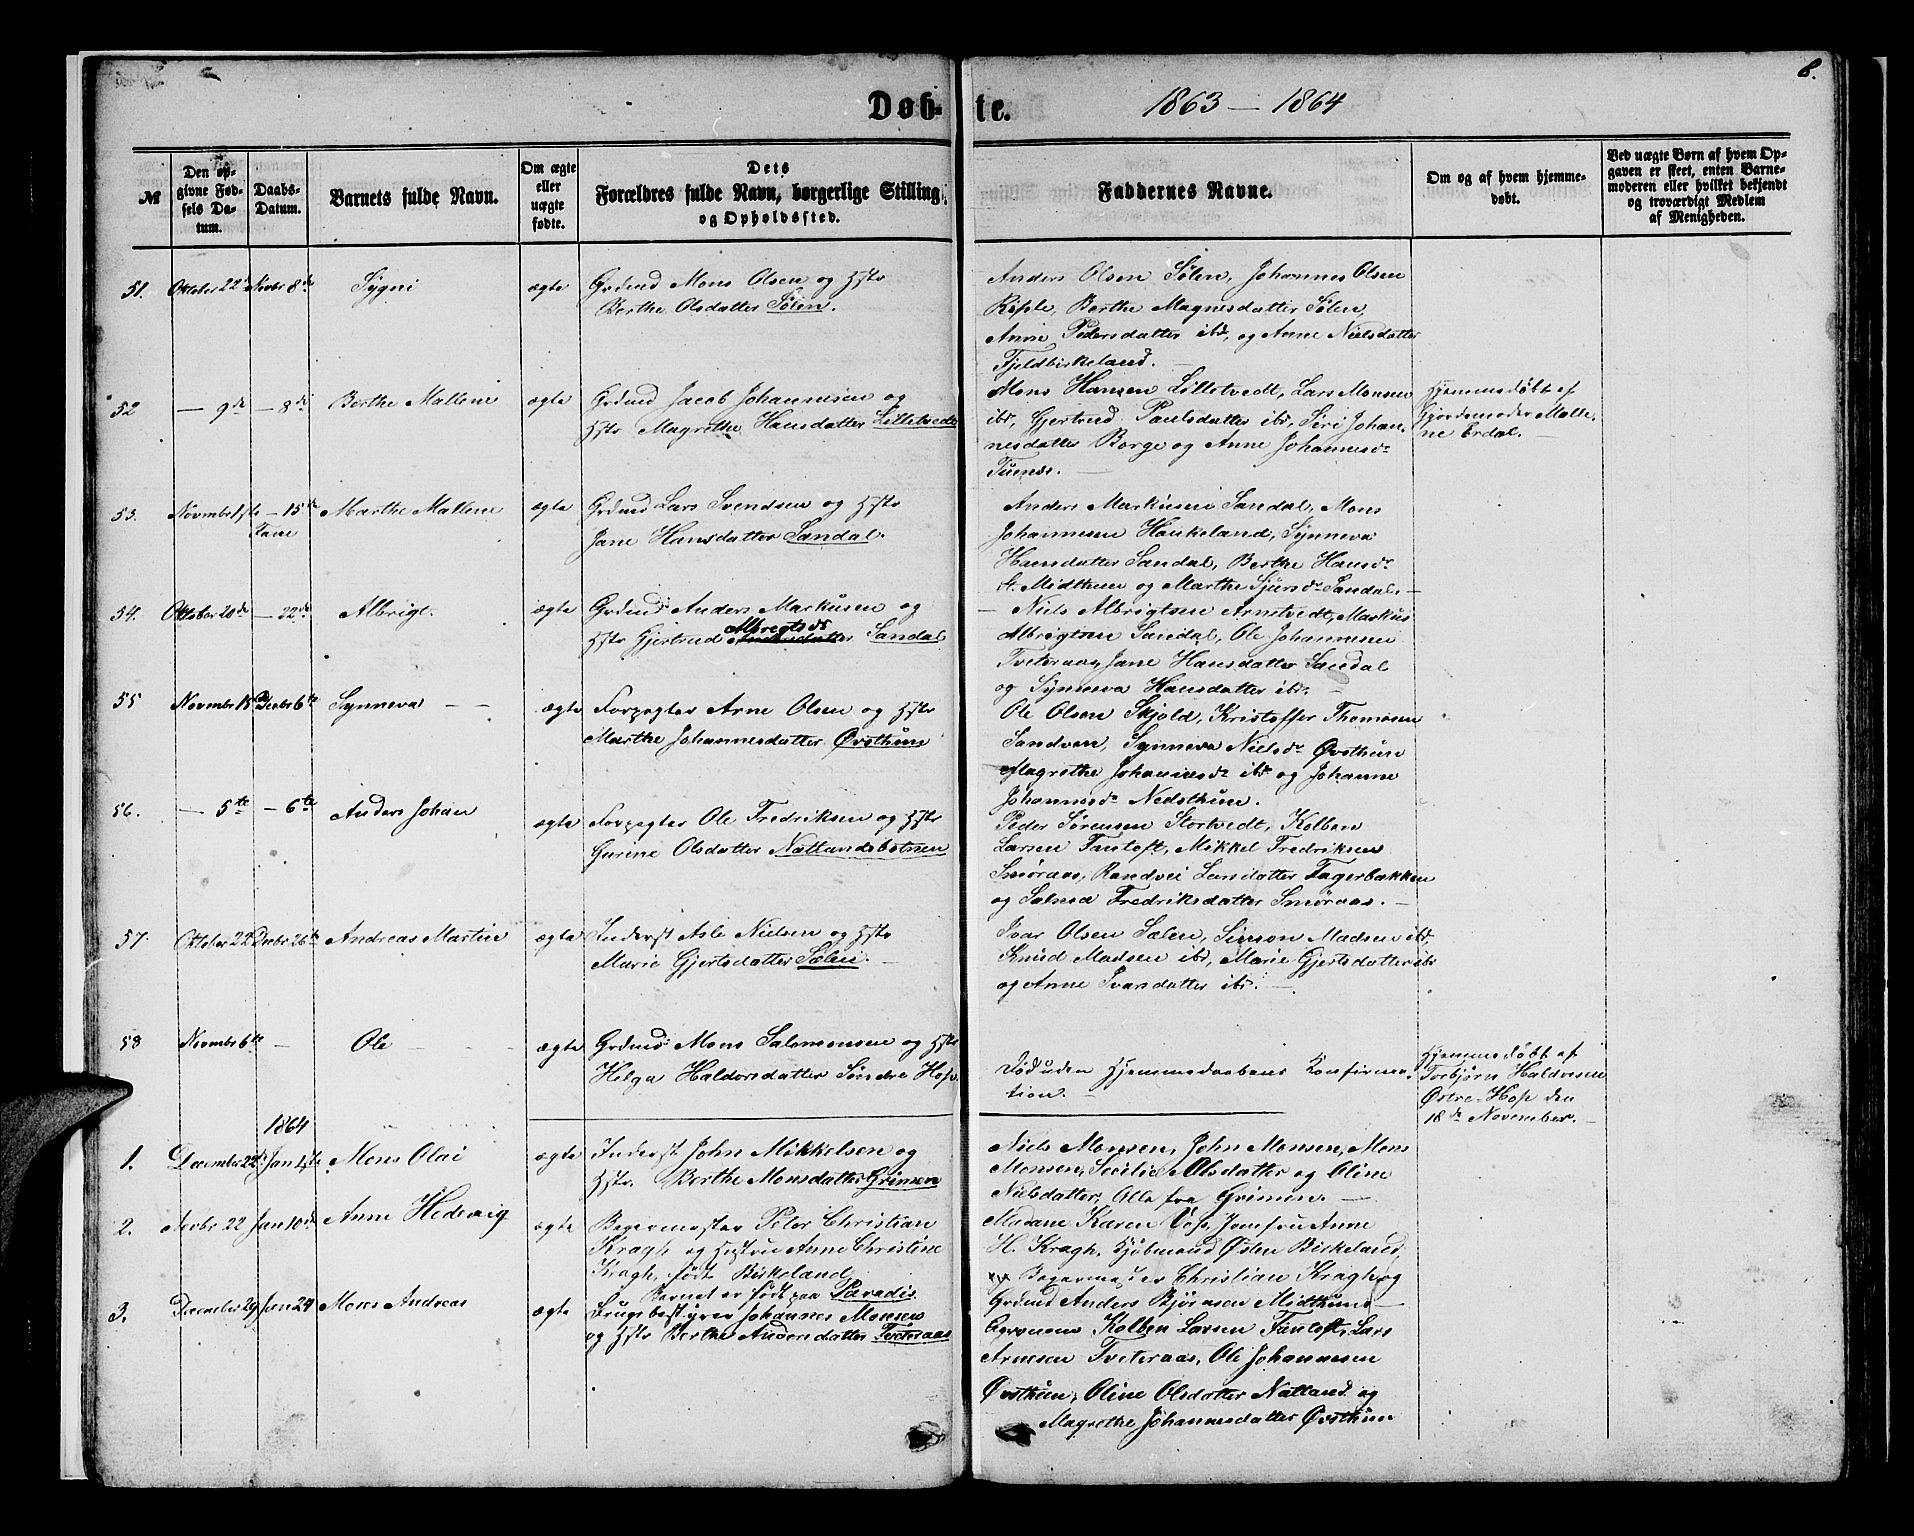 8.
Døb-te. 1863 – 1864
№
Den op-
givne Fød-
sels Da-
tum.
Daabs-
Datum.
Barnets fulde Navn.
Om ægte
eller
uægte
fødte.
Dets
Forældres fulde Navn, borgerlige Stilling,
og Opholdssted.
Faddernes Navne.
Om og af hvem hjemme-
døbt.
Ved uægte Børn af hvem Op-
gaven er skeet, enten Barne-
moderen eller hvilket bekjendt
og troværdigt Medlem
af Menigheden.
51. Oktober 22de Novbr 8de Sygni ægte Grdmd Mons Olsen og Hstr
Berthe Olsdatter Sølen.
Anders Olsen Sølen, Johannes Olsen
Riple, Berthe Magnesdatter Sølen,
Anne Pedersdatter ibd, og Anne Nielsdatter
Fjeldbirkeland. —
52 — 9de — 8de Berthe Mallene ægte Grdmd Jacob Johannesen og
Hstr Magrethe Hansdatter Lilletvedt
Mons Hansen Lilletvedt, Lars Monsen
ibd, Gjertrud Paulsdatter ibd, Siri Johan-
nesdatter Borge og Anne Johannesd.
Tuenæs. —
Hjemmedøbt af
Gjordemoder Malle-
ne Erdal. —
53. Novmbr 1ste — 15de Marthe Mallene ægte Grdmd Lars Svendsen og Hstr
Jane Hansdatter Sandal.
Anders Markusen Sandal, Mons
Johannesen Haukeland, Synneva
Hansdatter Sandal, Berthe Hansd.
St. Midthun og Marthe Sjursd. Sandal. —
54. Oktober 20de — 22de Albrigt. ægte Grdmd: Anders Markusen og
Albregtsdr
Hstr Gjertrud Sandal
— Niels Albrigtsen Arnetvedt, Markus
Albrigtsen Sandal, Ole Johannesen
Tveteraas, Jane Hansdatter Sandal
og Synneva Hansdatter ibd. —
55 Novmbr 18de Decbr 6te Synneva — — ægte Forpagter Arne Olsen og Hstr
Marthe Johannesdatter Øvsthun
Ole Olsen Skjold, Kristoffer Thomasen
Sandven, Synneva Nielsd. Øvsthun
Magrethe Johannesd. ibd og Johanne
Johannesd. Nedsthun.
56. — 5te — 6te Anders Johan ægte Forpagter Ole Fredriksen og Hstr
Gurine Olsdatter Natlandsbotnen
Peder Sørensen Stortvedt, Kolben
Larsen Fantoft, Mikkel Fredriksen
Smøraas, Randvei Larsdatter Fagerbakken
og Salmea Fredriksdatter Smøraas. —
57. Oktober 22 Decbr 26te Andreas Martin ægte Inderst Asle Nielsen og Hstr
Marie Gjertsdatter Sælen. —
Ivar Olsen Sælen, Simon Madsen ibd,
Knud Madsen ibd, Marie Gjertsdatter ibd
og Anne Ivarsdatter ibd. —
58 Novmbr 6te — Ole ægte Grdmd: Mons Salomonsen og Hstr
Helga Haldorsdatter Søndre Hop.
Død uden Hjemmedaabens Konfirma-
tion.
Hjemmedøbt af
Torbjørn Haldorsen
Østre-Hop den
18de November. —
1864
1. December 22de Jan 1ste Mons Olai ægte Inderst John Mikkelsen og
Hstr. Berthe Monsdatter Grimen
Niels Monsen, John Monsen, Mons
Monsen, Secilie Olsdatter og Oline
Nielsdatter, Alle fra Grimen. —
2. Novbr 22 Jan 10de Anne Hedevig ægte Bagermester Peter Christian
Kragh og Hustru Anne Christine
Kragh, født Birkeland,
Barnet er født paa Paradis
Madame Karen Voss, Jomfru Anne
H. Kragh, Kjøbmand Østen Birkeland,
Bagermester Christian Kragh og
Grdmd Anders Bjørnsen Midthun —
3. December 29 Jan 24 Mons Andreas ægte Brugsbestyrer Johannes Monsen
og Hstr Berthe Andersdatter Tveteraas
Agronom Kolben Larsen Fantoft, Lars
Arnesen Tveteraas, Ole Johannesen
Øvsthun, Oline Olsdatter Natland og
Magrethe Johannesdatter Øvsthun